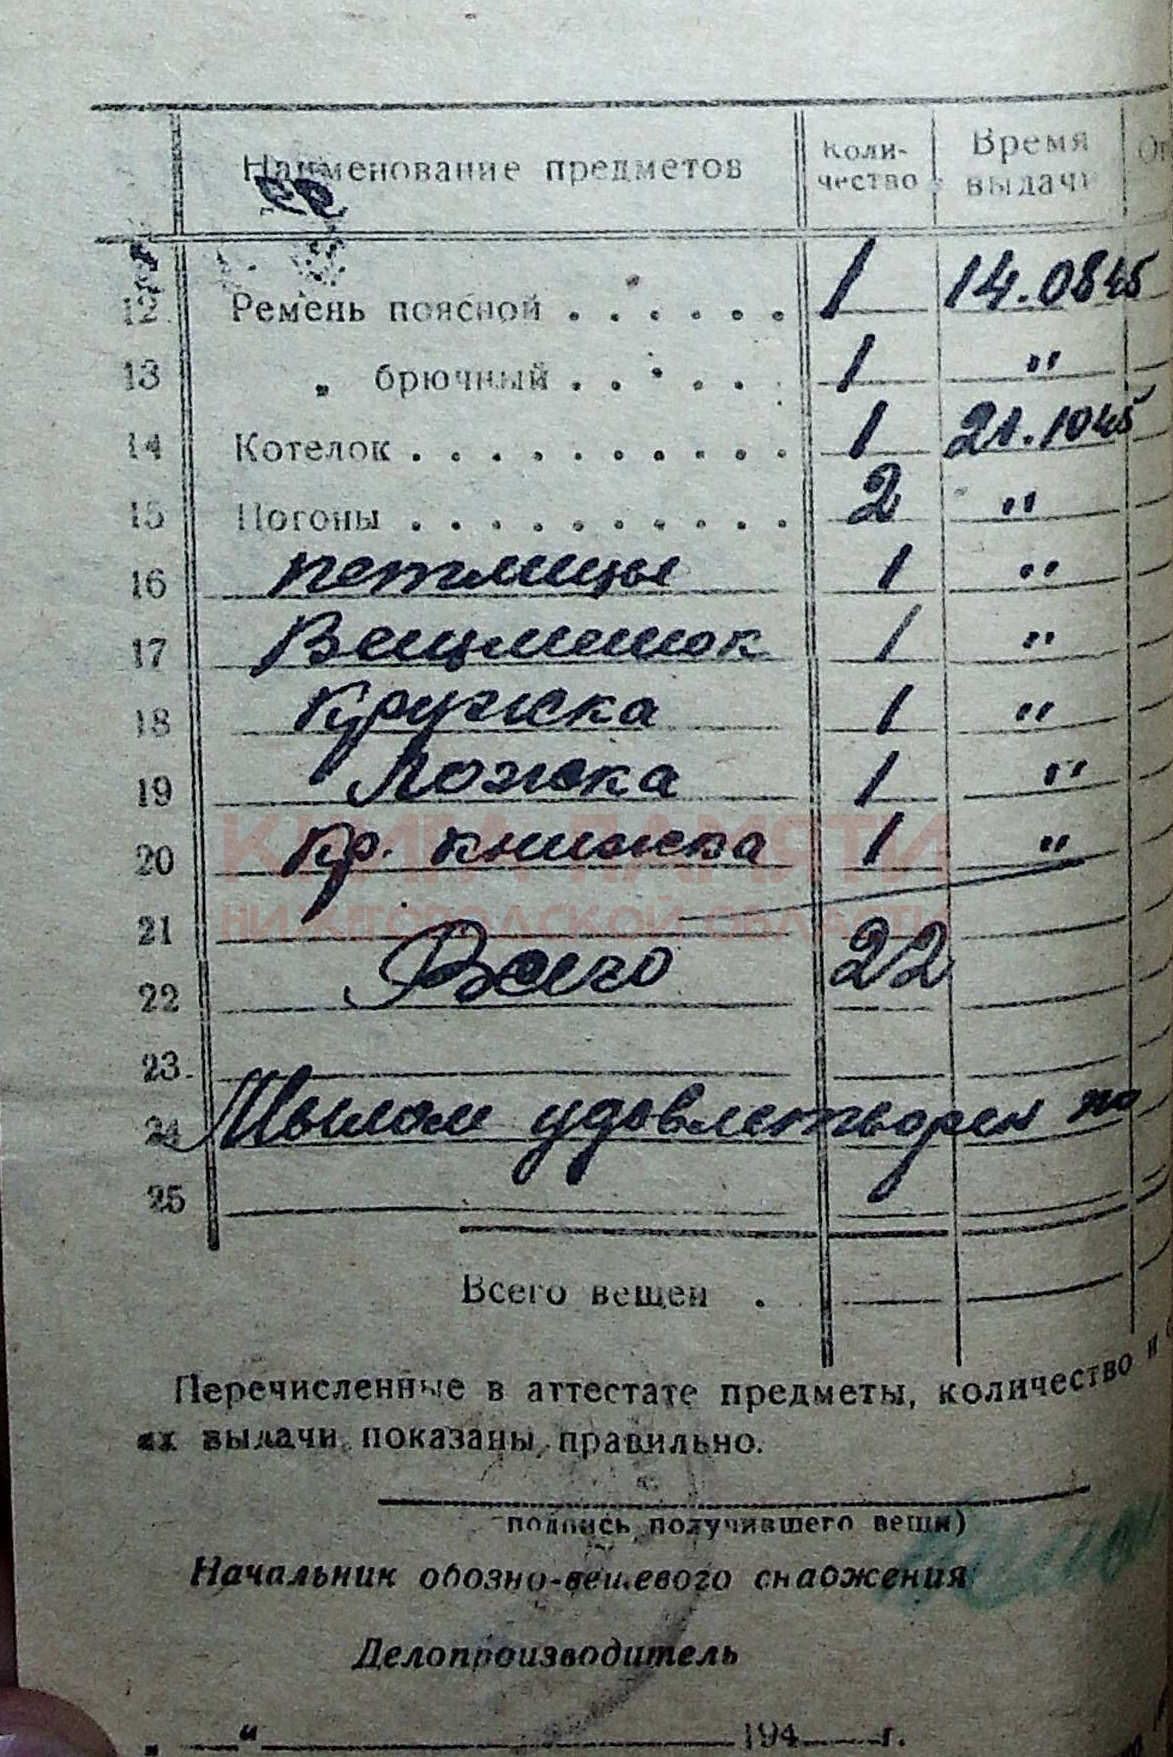 Наименование предметов Коли- Время
чество выдачи
12 Ремень поясной . . . . . . 1 14.08 45
13 „ брючный . . . . . 1 "
14 Котелок . . . . . . . . . . 1 21.10 45
15 Погоны . . . . . . . . . . 2 "
16 петлицы 1 "
17 Вещмешок 1 "
18 Кружка 1 "
19 Ложка 1 "
20 Кр. книжка 1 "
КНИГА ПАМЯТИ
НИЖЕГОРОДСКОЙ ОБЛАСТИ
21
22 Всего 22
23
24 Мылом удовлетворен по
25
Всего вещей .
Перечисленные в аттестате предметы, количество и
их выдачи показаны правильно.
подпись получившего вещи)
Начальник обозно-вещевого снабжения
Делопроизводитель
„ " 194 г.